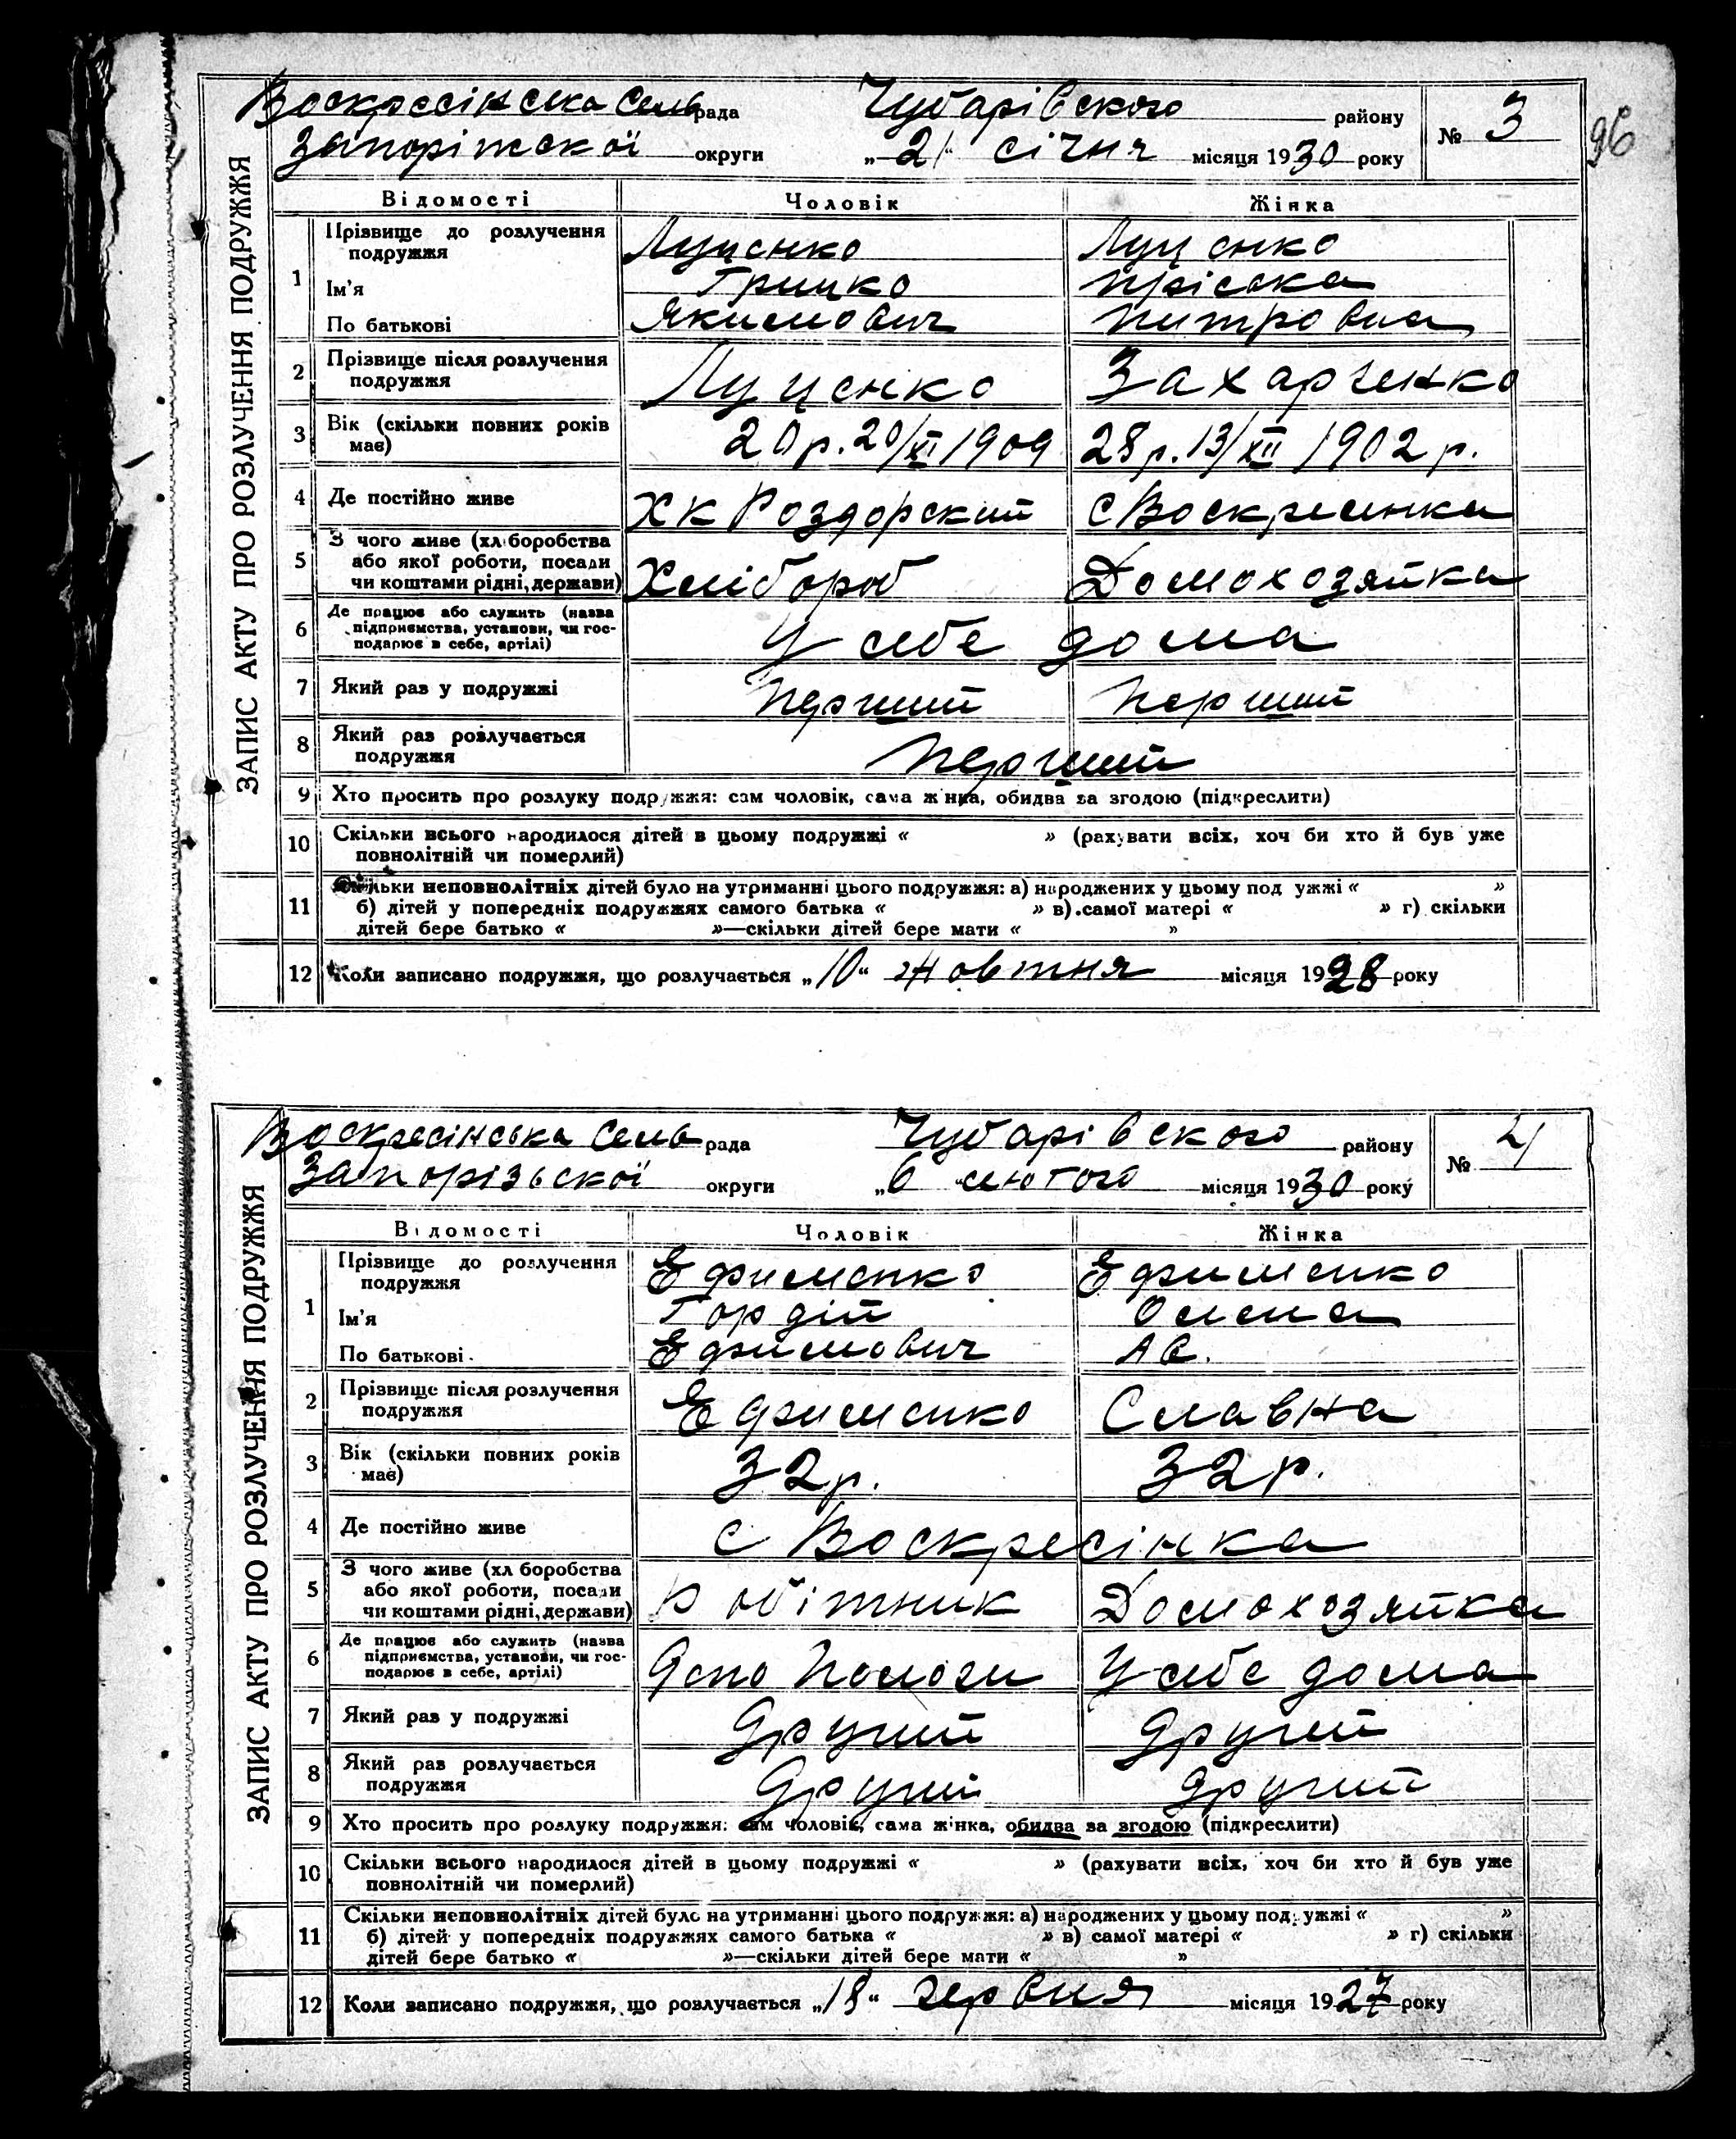 Воскресінська Сель рада Чубарівського району № 3 96
Запоріжської округи „21“ січня місяця 1930 року
ЗАПИС АКТУ ПРО РОЗЛУЧЕННЯ ПОДРУЖЖЯ
Відомості Чоловік Жінка
1 Прізвище до розлучення подружжя Луценко Луценко
Ім'я Грицко Пріська
По батькові Якимович Питровна
2 Прізвище після розлучення подружжя Луценко Захарченко
3 Вік (скільки повних років має) 20 р. 20/XI 1909 28 р. 13/XII 1902 р.
4 Де постійно живе Х К Роздорский С Воскресенка
5 З чого живе (хліборобства або якої роботи, посади чи коштами рідні, держави) Хлібороб Домохозяйка
6 Де працює або служить (назва підприємства, установи, чи господарює в себе, артілі) У себе дома
7 Який раз у подружжі Перший Перший
8 Який раз розлучається подружжя Перший
9 Хто просить про розлуку подружжя: сам чоловік, сама жінка, обидва за згодою (підкреслити)
10 Скільки всього народилося дітей в цьому подружжі « » (рахувати всіх, хоч би хто й був уже
повнолітній чи померлий)
11 Скільки неповнолітніх дітей було на утриманні цього подружжя: а) народжених у цьому подружжі « »
б) дітей у попередніх подружжях самого батька « » в) самої матері « » г) скільки
дітей бере батько « »—скільки дітей бере мати « »
12 Коли записано подружжя, що розлучається „10“ жовтня місяця 1928 року
Воскресінська Сель рада Чубарівского району № 4
Запорізьскої округи „6“ лютого місяця 1930 року
ЗАПИС АКТУ ПРО РОЗЛУЧЕННЯ ПОДРУЖЖЯ
Відомості Чоловік Жінка
1 Прізвище до розлучення подружжя Ефименко Ефименко
Ім'я Гордій Олена
По батькові Ефимович Ав.
2 Прізвище після розлучення подружжя Ефименко Славна
3 Вік (скільки повних років має) 32 р. 32 р.
4 Де постійно живе С Воскресінка
5 З чого живе (хліборобства або якої роботи, посади чи коштами рідні, держави) Робітник Домохозяйка
6 Де працює або служить (назва підприємства, установи, чи господарює в себе, артілі) Депо Пологи У себе дома
7 Який раз у подружжі Другий Другий
8 Який раз розлучається подружжя Другий Другий
9 Хто просить про розлуку подружжя: сам чоловік, сама жінка, обидва за згодою (підкреслити)
10 Скільки всього народилося дітей в цьому подружжі « » (рахувати всіх, хоч би хто й був уже
повнолітній чи померлий)
11 Скільки неповнолітніх дітей було на утриманні цього подружжя: а) народжених у цьому подружжі « »
б) дітей у попередніх подружжях самого батька « » в) самої матері « » г) скільки
дітей бере батько « »—скільки дітей бере мати « »
12 Коли записано подружжя, що розлучається „18“ червня місяця 1927 року